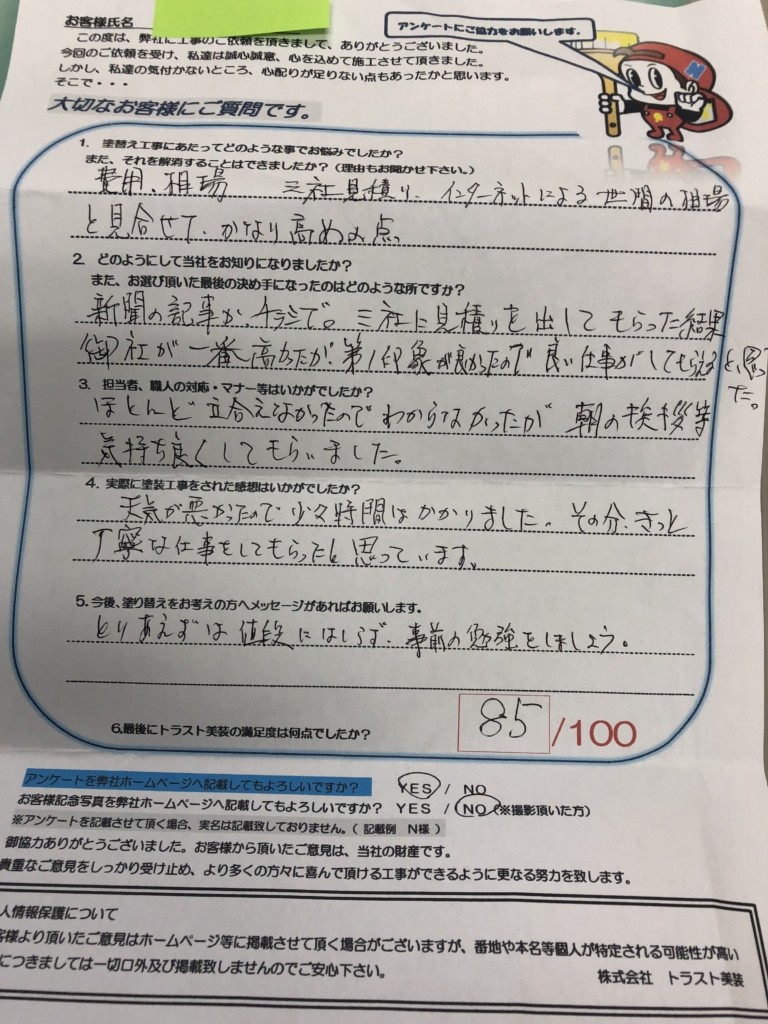 お客様氏名
アンケートにご協力をお願いします。
この度は、弊社に工事のご依頼を頂きまして、ありがとうございました。
今回のご依頼を受け、私達は誠心誠意、心を込めて施工させて頂きました。
しかし、私達の気付かないところ、心配りが足りない点もあったかと思います。
そこで・・・
大切なお客様にご質問です。
1. 塗替え工事にあたってどのような事でお悩みでしたか?
また、それを解消することはできましたか?(理由もお聞かせ下さい。)
費用、相場 三社見積り、インターネットによる世間の相場
と見合せて、かなり高めの点。
2. どのようにして当社をお知りになりましたか?
また、お選び頂いた最後の決め手になったのはどのような所ですか?
新聞の記事か、チラシで。三社に見積りを出してもらった結果
御社が一番高かったが、第1印象が良かったので良い仕事がしてもらえると思っ
た。
3. 担当者、職人の対応・マナー等はいかがでしたか?
ほとんど立合えなかったのでわからなかったが 朝の挨拶等
気持ち良くしてもらいました。
4. 実際に塗装工事をされた感想はいかがでしたか?
天気が悪かったので少々時間はかかりました。その分、きっと
丁寧な仕事をしてもらったと思っています。
5. 今後、塗り替えをお考えの方へメッセージがあればお願いします。
とりあえずは値段にはしらず、事前の勉強をしましょう。
6.最後にトラスト美装の満足度は何点でしたか?
85/100
アンケートを弊社ホームページへ記載してもよろしいですか? YES / NO
お客様記念写真を弊社ホームページへ記載してもよろしいですか? YES / NO(※撮影頂いた方)
※アンケートを記載させて頂く場合、実名は記載致しておりません。( 記載例 N様 )
御協力ありがとうございました。お客様から頂いたご意見は、当社の財産です。
貴重なご意見をしっかり受け止め、より多くの方々に喜んで頂ける工事ができるように更なる努力を致します。
人情報保護について
客様より頂いたご意見はホームページ等に掲載させて頂く場合がございますが、番地や本名等個人が特定される可能性が高い
につきましては一切口外及び掲載致しませんのでご安心下さい。
株式会社 トラスト美装